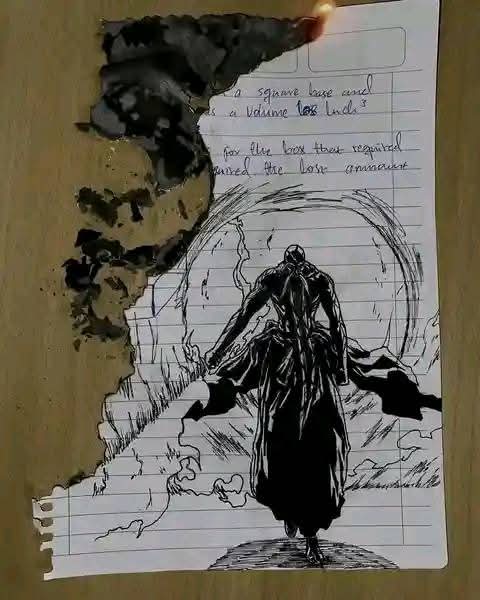 a square base and
a volume 108 Inch³
for the box that required
the lost ammount